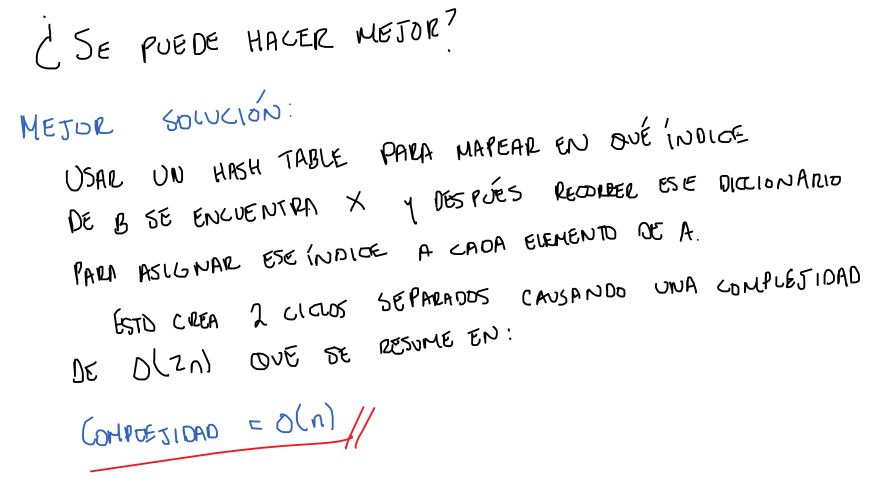 ¿SE PUEDE HACER MEJOR?
MEJOR SOLUCIÓN:
USAR UN HASH TABLE PARA MAPEAR EN QUÉ ÍNDICE
DE B SE ENCUENTRA X Y DESPUÉS RECORRER ESE DICCIONARIO
PARA ASIGNAR ESE ÍNDICE A CADA ELEMENTO DE A.
ESTO CREA 2 CICLOS SEPARADOS CAUSANDO UNA COMPLEJIDAD
DE O(2n) QUE SE RESUME EN:
COMPLEJIDAD = O(n)